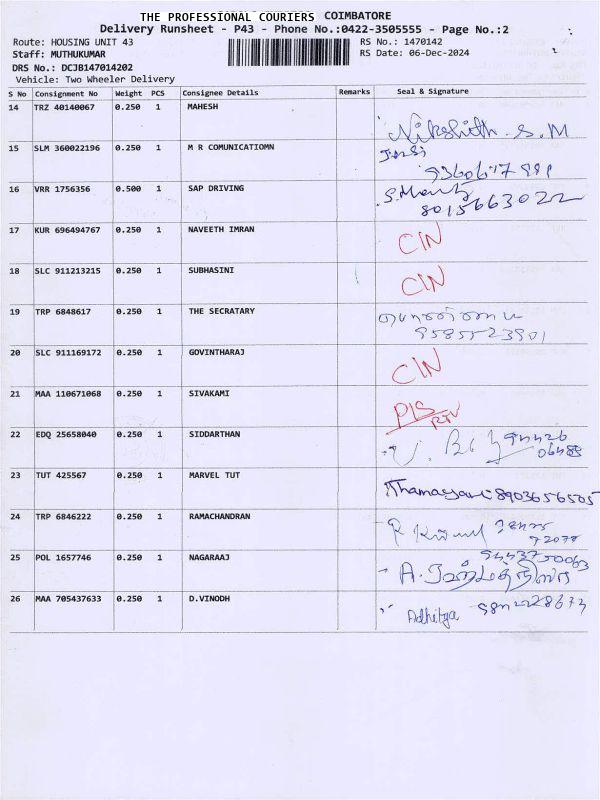 THE PROFESSIONAL COURIERS COIMBATORE
Delivery Runsheet - P43 - Phone No.:0422-3505555 - Page No.:2
Route: HOUSING UNIT 43
RS No.: 1470142
Staff: MUTHUKUMAR
RS Date: 06-Dec-2024
DRS No.: DCJB147014202
Vehicle: Two Wheeler Delivery
S No Consignment No Weight PCS Consignee Details Remarks Seal & Signature
14 TRZ 40140067 0.250 1 MAHESH Nikshith. S. M
15 SLM 360022196 0.250 1 M R COMUNICATIOMN
16 VRR 1756356 0.500 1 SAP DRIVING
8015663022
17 KUR 696494767 0.250 1 NAVEETH IMRAN CIN
18 SLC 911213215 0.250 1 SUBHASINI CIN
19 TRP 6848617 0.250 1 THE SECRATARY
9585523901
20 SLC 911169172 0.250 1 GOVINTHARAJ CIN
21 MAA 110671068 0.250 1 SIVAKAMI
22 EDQ 25658040 0.250 1 SIDDARTHAN
23 TUT 425567 0.250 1 MARVEL TUT 8903656505
24 TRP 6846222 0.250 1 RAMACHANDRAN
25 POL 1657746 0.250 1 NAGARAAJ
9443750063
26 MAA 705437633 0.250 1 D.VINODH Adhitya